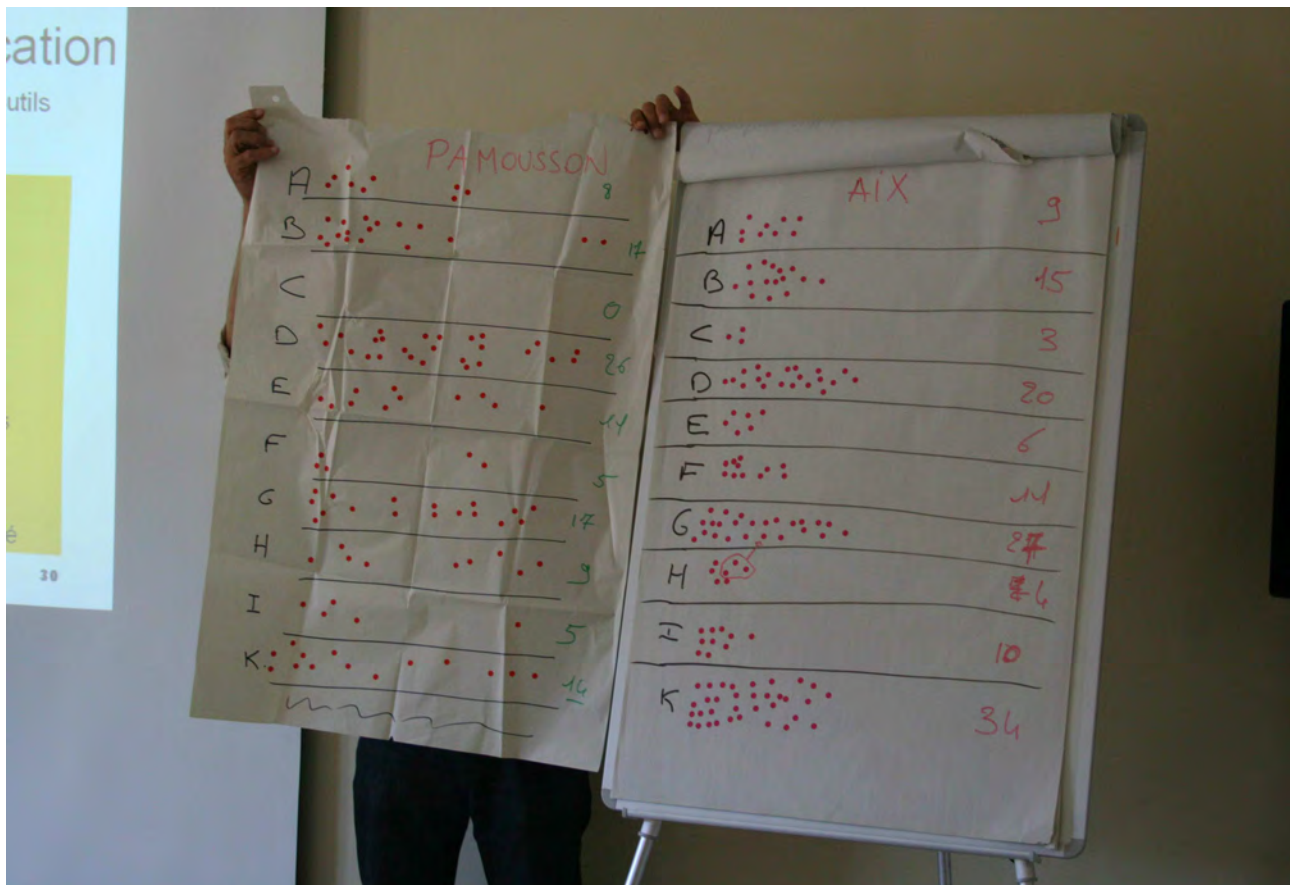 cation
utils
é
30
PAMOUSSON
A 8
B 17
C 0
D 26
E 11
F 5
G 17
H 9
I 5
K 14
AiX
A 9
B 15
C 3
D 20
E 6
F 11
G
H
I 10
K 34